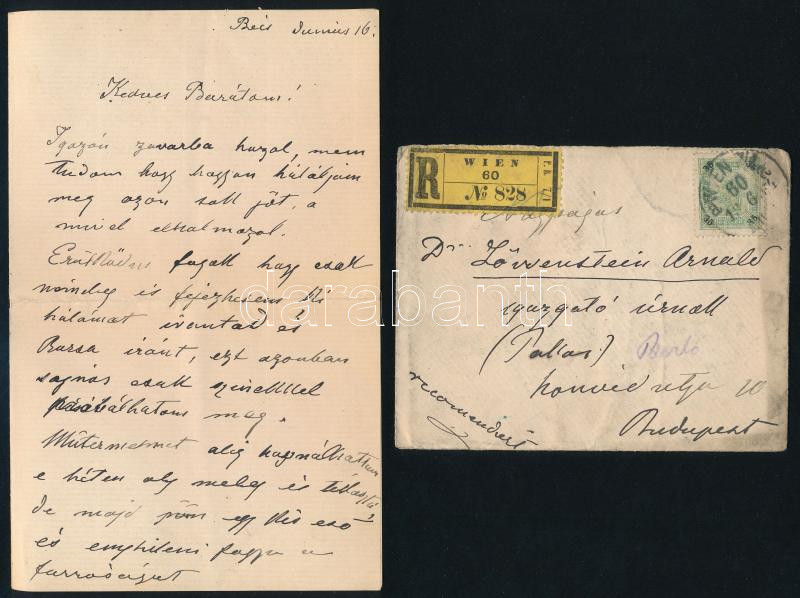 Bécs Junius 16.
Kedves Barátom!
Igazán zavarba hozol, nem
tudom hogy hogyan háláljam
meg azon sok jót, a
mivel elhalmozol.
fogok hogy csak
némileg is fejezhesem ki
hálámat irántad és
iránt, ezt azonban
sajnos csak
meg.
Mütermemet alig használhattam
e héten oly meleg és
de majd jön egy kis eső
és enyhiteni fogja a
forróságot
R WIEN
60
№ 828
Nagyságos
Dr Löwenstein Arnold
igazgató úrnak
(Pallas)
honvéd utja 10
Budapest
recomendirt
WIEN
60
darabanth